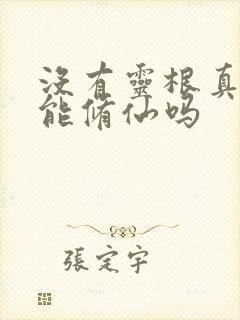 沒有靈根真
能脩仙吗
張定宇